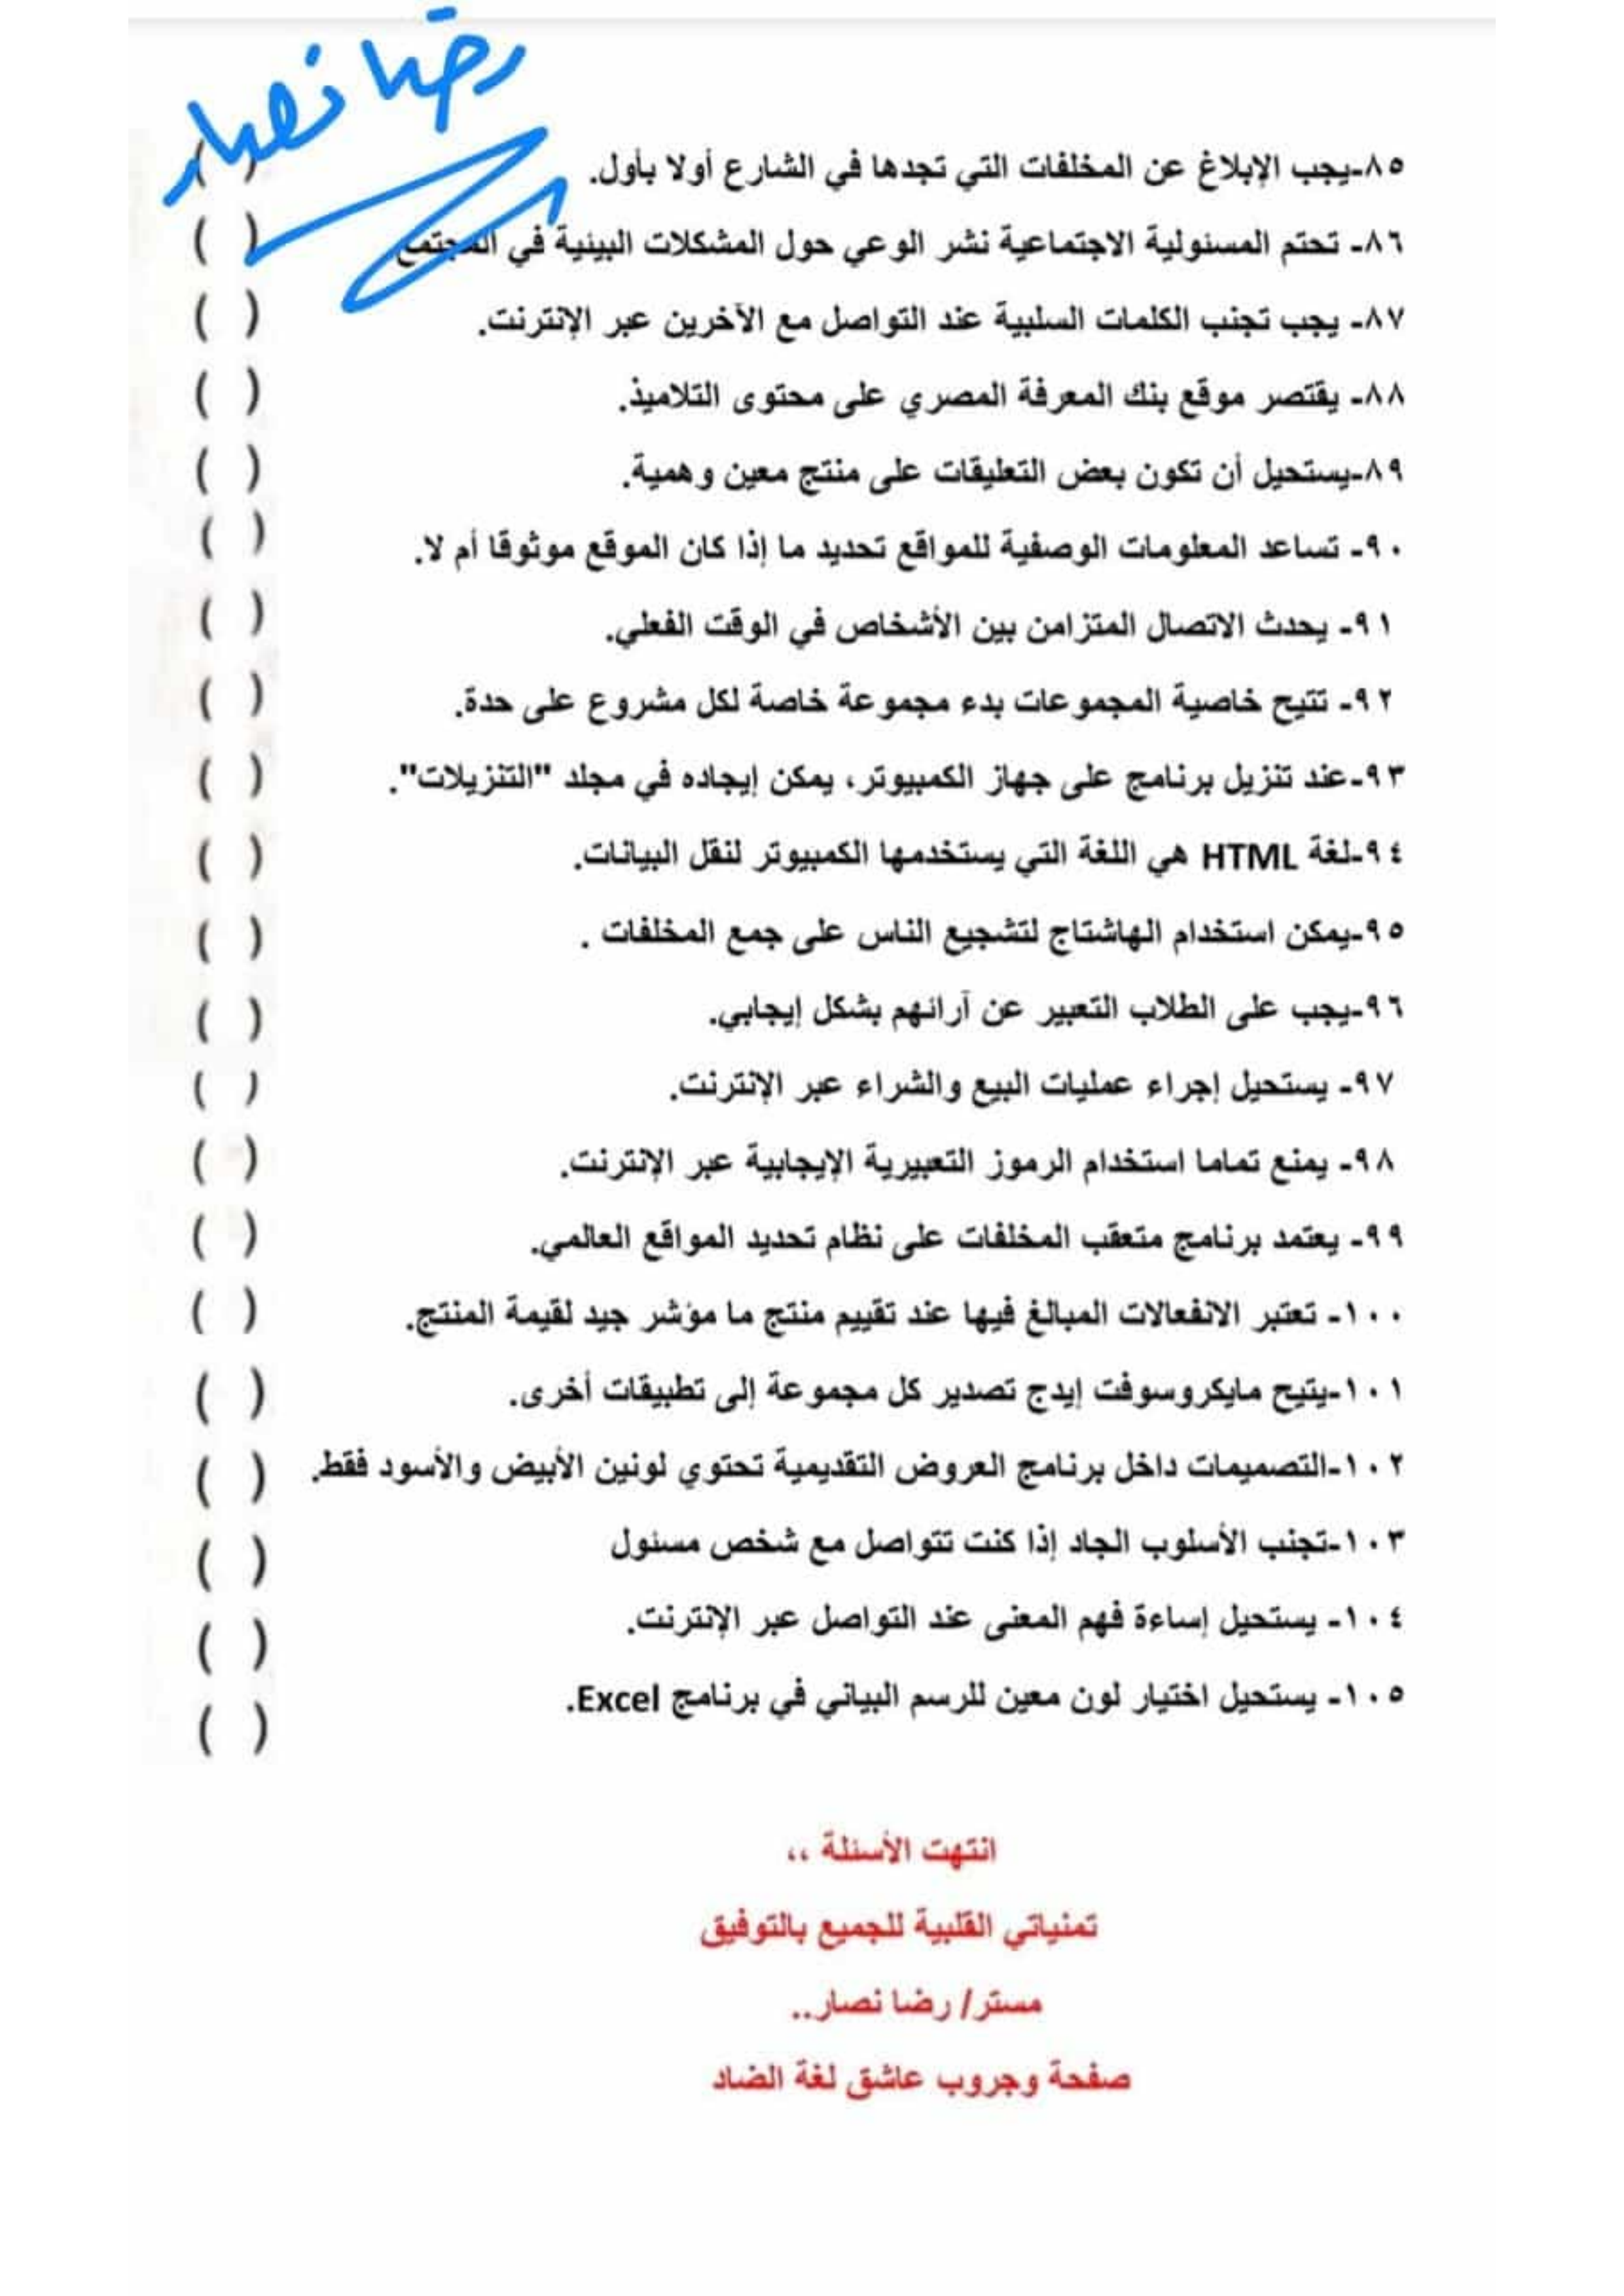 رضا نصار
٨٥-يجب الإبلاغ عن المخلفات التي تجدها في الشارع أولا بأول. ( )
٨٦- تحتم المسئولية الاجتماعية نشر الوعي حول المشكلات البيئية في المجتمع ( )
٨٧- يجب تجنب الكلمات السلبية عند التواصل مع الآخرين عبر الإنترنت. ( )
٨٨- يقتصر موقع بنك المعرفة المصري على محتوى التلاميذ. ( )
٨٩-يستحيل أن تكون بعض التعليقات على منتج معين وهمية. ( )
٩٠- تساعد المعلومات الوصفية للمواقع تحديد ما إذا كان الموقع موثوقا أم لا. ( )
٩١- يحدث الاتصال المتزامن بين الأشخاص في الوقت الفعلي. ( )
٩٢- تتيح خاصية المجموعات بدء مجموعة خاصة لكل مشروع على حدة. ( )
٩٣-عند تنزيل برنامج على جهاز الكمبيوتر، يمكن إيجاده في مجلد "التنزيلات". ( )
٩٤-لغة HTML هي اللغة التي يستخدمها الكمبيوتر لنقل البيانات. ( )
٩٥-يمكن استخدام الهاشتاج لتشجيع الناس على جمع المخلفات . ( )
٩٦-يجب على الطلاب التعبير عن آرائهم بشكل إيجابي. ( )
٩٧- يستحيل إجراء عمليات البيع والشراء عبر الإنترنت. ( )
٩٨- يمنع تماما استخدام الرموز التعبيرية الإيجابية عبر الإنترنت. ( )
٩٩- يعتمد برنامج متعقب المخلفات على نظام تحديد المواقع العالمي. ( )
١٠٠- تعتبر الانفعالات المبالغ فيها عند تقييم منتج ما مؤشر جيد لقيمة المنتج. ( )
١٠١-يتيح مايكروسوفت إيدج تصدير كل مجموعة إلى تطبيقات أخرى. ( )
١٠٢-التصميمات داخل برنامج العروض التقديمية تحتوي لونين الأبيض والأسود فقط. ( )
١٠٣-تجنب الأسلوب الجاد إذا كنت تتواصل مع شخص مسئول ( )
١٠٤- يستحيل إساءة فهم المعنى عند التواصل عبر الإنترنت. ( )
١٠٥- يستحيل اختيار لون معين للرسم البياني في برنامج Excel. ( )
انتهت الأسئلة ،،
تمنياتي القلبية للجميع بالتوفيق
مستر/ رضا نصار..
صفحة وجروب عاشق لغة الضاد